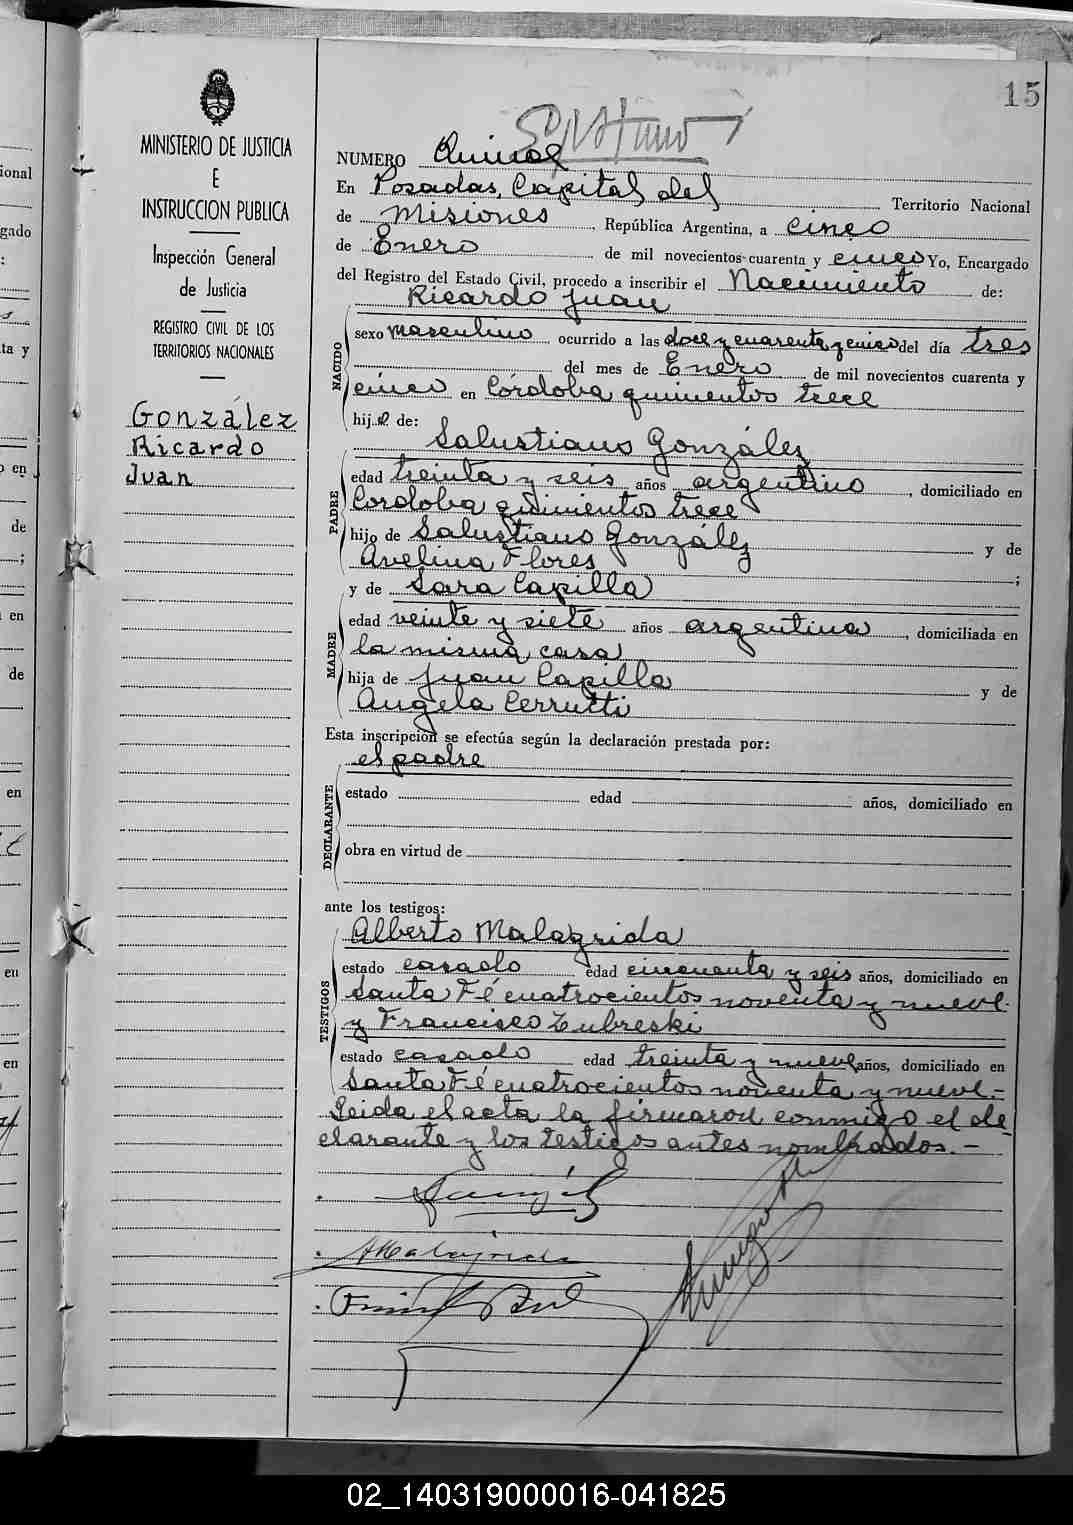 15
MINISTERIO DE JUSTICIA
E
INSTRUCCION PUBLICA
Inspección General
de Justicia
REGISTRO CIVIL DE LOS
TERRITORIOS NACIONALES
González
Ricardo
Juan
NUMERO Quince
En Posadas, Capital del Territorio Nacional
de Misiones, República Argentina, a cinco
de Enero de mil novecientos cuarenta y cinco Yo, Encargado
del Registro del Estado Civil, procedo a inscribir el Nacimiento de:
Ricardo Juan
NACIDO
sexo masculino ocurrido a las doce y cuarenta y cinco del día tres
del mes de Enero de mil novecientos cuarenta y
cinco en Córdoba quinientos trece
hijo de:
Salustiano González
PADRE
edad treinta y seis años argentino, domiciliado en
Cordoba quinientos trece
hijo de Salustiano González y de
Avelina Flores;
y de Sara Capilla
MADRE
edad veinte y siete años argentina, domiciliada en
la misma casa
hija de Juan Capilla y de
Angela Cerrutti
Esta inscripción se efectúa según la declaración prestada por:
el padre
DECLARANTE
estado edad años, domiciliado en
obra en virtud de
ante los testigos:
Alberto Malagrida
TESTIGOS
estado casado edad cincuenta y seis años, domiciliado en
Santa Fé cuatrocientos noventa y nueve.
y Francisco Zubreski
estado casado edad treinta y nueve años, domiciliado en
Santa Fé cuatrocientos noventa y nueve.-
Leida el acta la firmaron conmigo el de
clarante y los testigos antes nombrados.-
AMalagrida
ional
gado
:
ta y
en
de
;
en
de
en
en
en
02_140319000016-041825